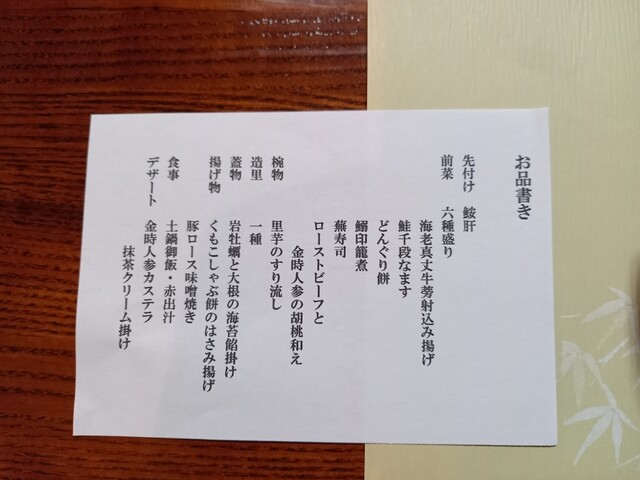 お品書き
先付け 鮟肝
前菜 六種盛り
海老真丈牛蒡射込み揚げ
鮭千段なます
どんぐり餅
鰯印籠煮
蕪寿司
ローストビーフと
金時人参の胡桃和え
椀物 里芋のすり流し
造里 一種
蓋物 岩牡蠣と大根の海苔餡掛け
揚げ物 くもこしゃぶ餅のはさみ揚げ
豚ロース味噌焼き
食事 土鍋御飯・赤出汁
デザート 金時人参カステラ
抹茶クリーム掛け